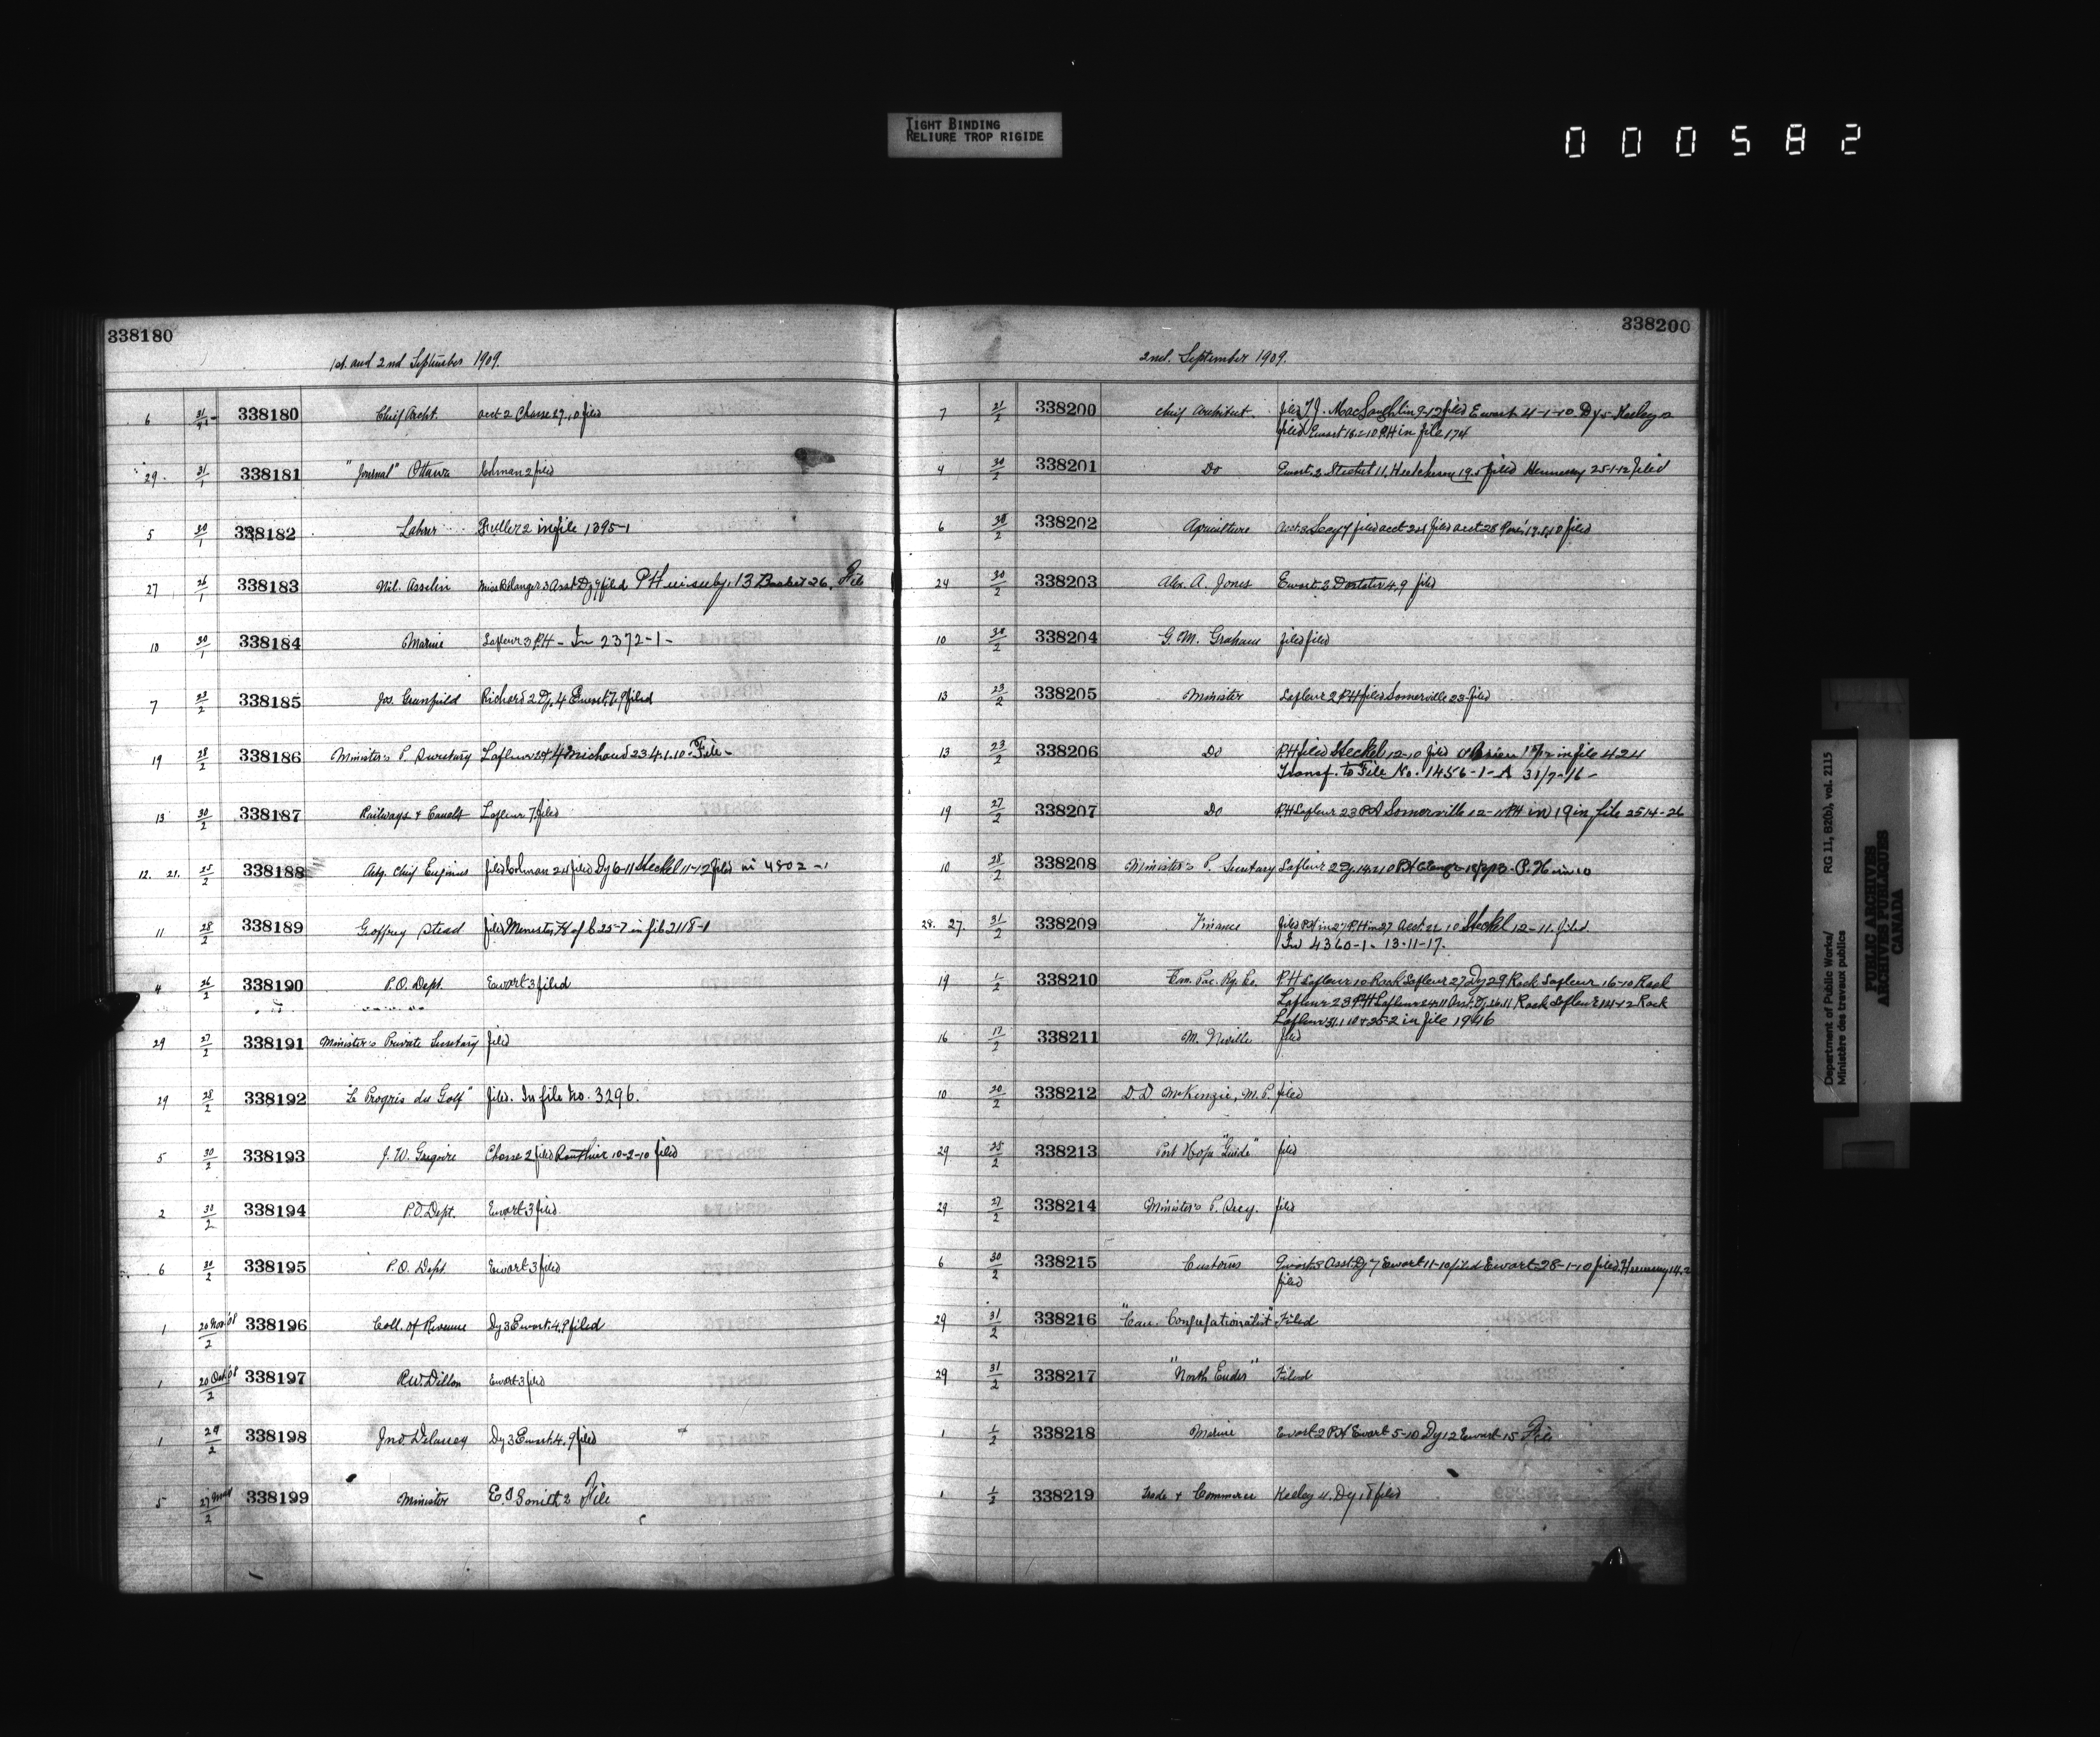 TIGHT BINDING
RELIURE TROP RIGIDE
000582
338180
1st. and 2nd September 1909.
6 31/1 338180 Chief Archt. acct 2 Chasse 29.10 filed
29. 31/1 338181 "Journal" Ottawa Colman 2 filed
5 30/1 338182 Labor Fuller 2 in file 1395-1
27 26/1 338183 Nil. Asselin Miss Belanger 3 Asst Dy 9 filed PH 13 Basket 26. File
10 30/1 338184 Marine Lafleur 3 P.H - In 2372-1-
7 23/2 338185 Jos. Richard 2 Dy. 4 Ewart 7.9 filed
19 28/2 338186 Minister's P. Secretary Lafleur Michaud 23 4.1.10 - File -
13 30/2 338187 Railways & Canals Lafleur 7 filed
12. 21. 25/2 338188 Actg. Chief Engineer filed Colman 24 filed Dy 6-11 Steckel 11-12 filed in 4802-1
11 28/2 338189 Geoffrey Stead filed Minister, H of C 25-7 in file 2118-1
4 26/2 338190 P.O. Dept. Ewart 3 filed
29 27/2 338191 Minister's Private Secretary filed
29 28/2 338192 "Le Progrès du Golf" filed. In file No. 3296.
5 30/2 338193 J. W. Gregoire Chasse 2 filed Routhier 10-2-10 filed
2 30/2 338194 P.O. Dept. Ewart 3 filed
6 30/2 338195 P.O. Dept. Ewart 3 filed
1 20 Nov. '08/2 338196 Coll. of Revenue Dy 3 Ewart 4.9 filed
1 20 Oct '08/2 338197 R.W. Dillon Ewart 3 filed
1 29/2 338198 Jno. Delaney Dy 3 Ewart 4.9 filed
5 27/2 338199 Minister E.D Smith 2 File
338200
2nd. September 1909.
7 31/2 338200 Chief Architect. filed T.J. MacLaughlin 9-12 filed Ewart 4-1-10 Dy 5 Keeley
filed Ewart PH in file 174
4 30/2 338201 Do Ewart 2 11. Hutcheson 19.5 filed Hennessy 25-1-12 filed
6 30/2 338202 Agriculture acct 3 Secy 7 filed acct 24 filed acct 28 filed
24 30/2 338203 Alex. A. Jones Ewart 3 4.9 filed
10 30/2 338204 G. M. Graham filed filed
13 23/2 338205 Minister Lafleur 2 P.H filed Somerville 23 filed
13 23/2 338206 Do P.H filed Steckel 12-10 filed O'Brien in file 424
Transf. to File No. 1456-1-A 31/7-16-
19 27/2 338207 Do P.H Lafleur 23 Somerville 12-11 PH in 19 in file 2514-26
10 28/2 338208 Minister's P. Secretary Lafleur 2 Dy. P.H in 10
28. 27. 31/2 338209 Finance filed P.H in 27 P.H in 27 Acct 22 10 Steckel 12-11. filed
In 4360-1- 13-11-17.
19 1/2 338210 Can. Pac. Ry. Co. P.H Lafleur 10 Rook Lafleur 27 Dy 29 Rook Lafleur 16-10 Rook
Lafleur 23 P.H Lafleur 24.11 Asst. Dy. 26.11 Rook Lafleur Rook
Lafleur 31.1.10 & 25-2 in file 1946
16 17/2 338211 M. Neville filed
10 20/2 338212 D. D. McKenzie, M.P. filed
29 25/2 338213 Port Hope "Guide" filed
29 27/2 338214 Minister's P. Secy. filed
6 30/2 338215 Customs Ewart 3 Asst. Dy 7 Ewart 11-10 filed Ewart 28-1-10 filed Hennessy 14.2
filed
29 31/2 338216 "Can. Congregationalist" Filed
29 31/2 338217 "North Ender" Filed
1 1/2 338218 Marine Ewart 2 P.H Ewart 5-10 Dy 12 Ewart 15 File
1 1/2 338219 Trade & Commerce Keeley 4. Dy 18 filed
Department of Public Works/ RG 11, B2(b), vol. 2115
Ministère des travaux publics
PUBLIC ARCHIVES
ARCHIVES PUBLIQUES
CANADA